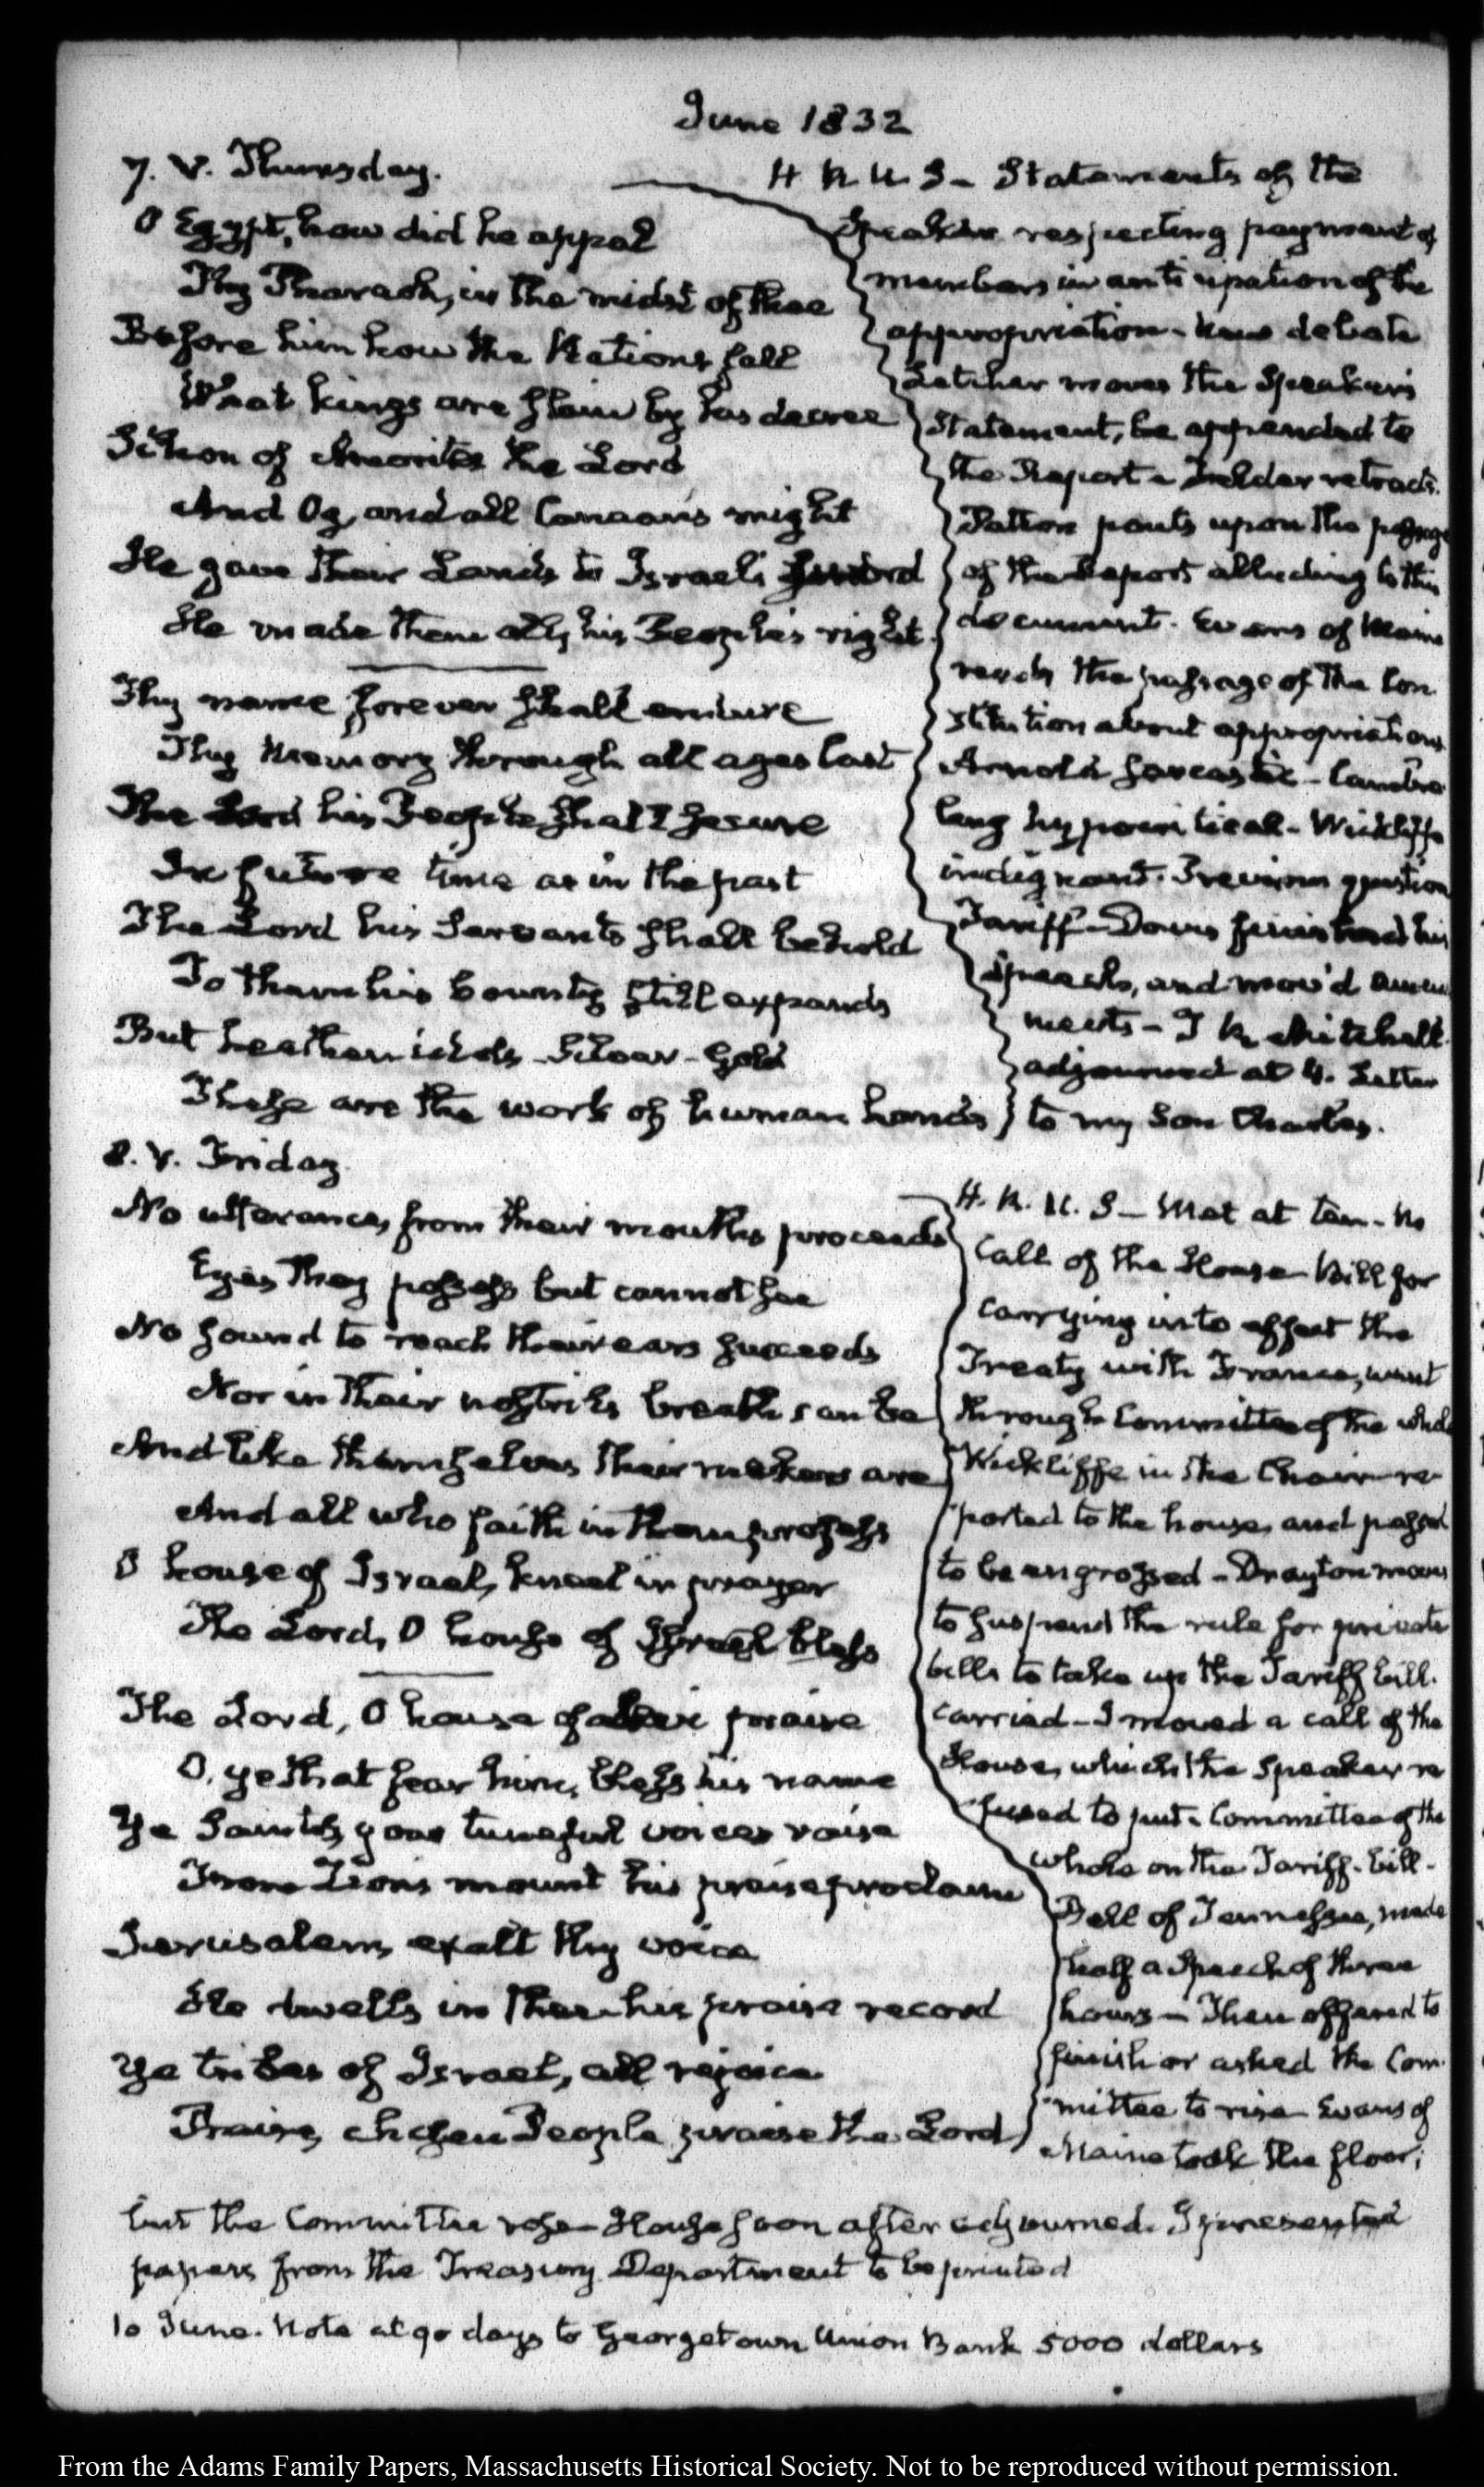 June 1832
7. V. Thursday.
O Egypt, how did he appal
Thy Pharaoh, in the midst of thee
Before him how the Nations fall
What kings are slain by his decree
Sihon of Amorites the Lord
And Og, and all Canaan's might
He gave their Lands to Israel's
He made them all, his People's right.
Thy name forever shall endure
Thy Memory through all ages last
The Lord his People shall secure
In future time as in the past
The Lord his Servants shall behold
To them his bounty still expands
But heathen idols - Silver - Gold
These are the work of human hands
H R U S - Statements of the
Speaker respecting payment of
members in anticipation of the
appropriation - New debate
Letcher moves the Speaker's
Statement, be appended to
the Report - Felder retracts.
Patton pouts upon the passage
of the Report alluding to this
document. Evans of Maine
reads the passage of the Con
stitution about appropriations
Arnold sarcastic - Cambre
leng hypocritical - Wickliffe
indignant. Previous question
Tariff - Davis finished his
Speech, and mov'd amend
ments - T R Mitchell.
adjourned at 4. Letter
to my Son Charles.
8. V. Friday.
No utterance, from their mouths proceeds
Eyes they possess but cannot see
No sound to reach their ears succeeds
Nor in their nostrils breath can be
And like themselves their makers are
And all who faith in them profess
O house of Israel, kneel in prayer
The Lord, O house of Israel bless
The Lord, O house of Levi praise
O, ye that fear him, bless his name
Ye Saints, your tuneful voices raise
From Zion's mount his praise proclaim
Jerusalem, exalt thy voice
He dwells in thee - his praise record
Ye tribes of Israel, all rejoice
Praise, chosen People, praise the Lord
H. R. U. S - Met at ten - No
Call of the House - Bill for
carrying into effect the
Treaty with France, went
through Committee of the whole
Wickliffe in the Chair - re
ported to the house, and passed
to be engrossed - Drayton moves
to suspend the rule for private
bills to take up the Tariff bill.
carried - I moved a call of the
House, which the Speaker re
fused to put - Committee of the
whole on the Tariff - bill -
Bell of Tennessee, made
half a Speech of three
hours - Then offered to
finish or asked the Com
mittee to rise - Evans of
Maine took the floor;
but the Committee rose - House soon after adjourned. I presented
papers from the Treasury Department to be printed
10 June. Note at 90 days to Georgetown Union Bank 5000 dollars
From the Adams Family Papers, Massachusetts Historical Society. Not to be reproduced without permission.